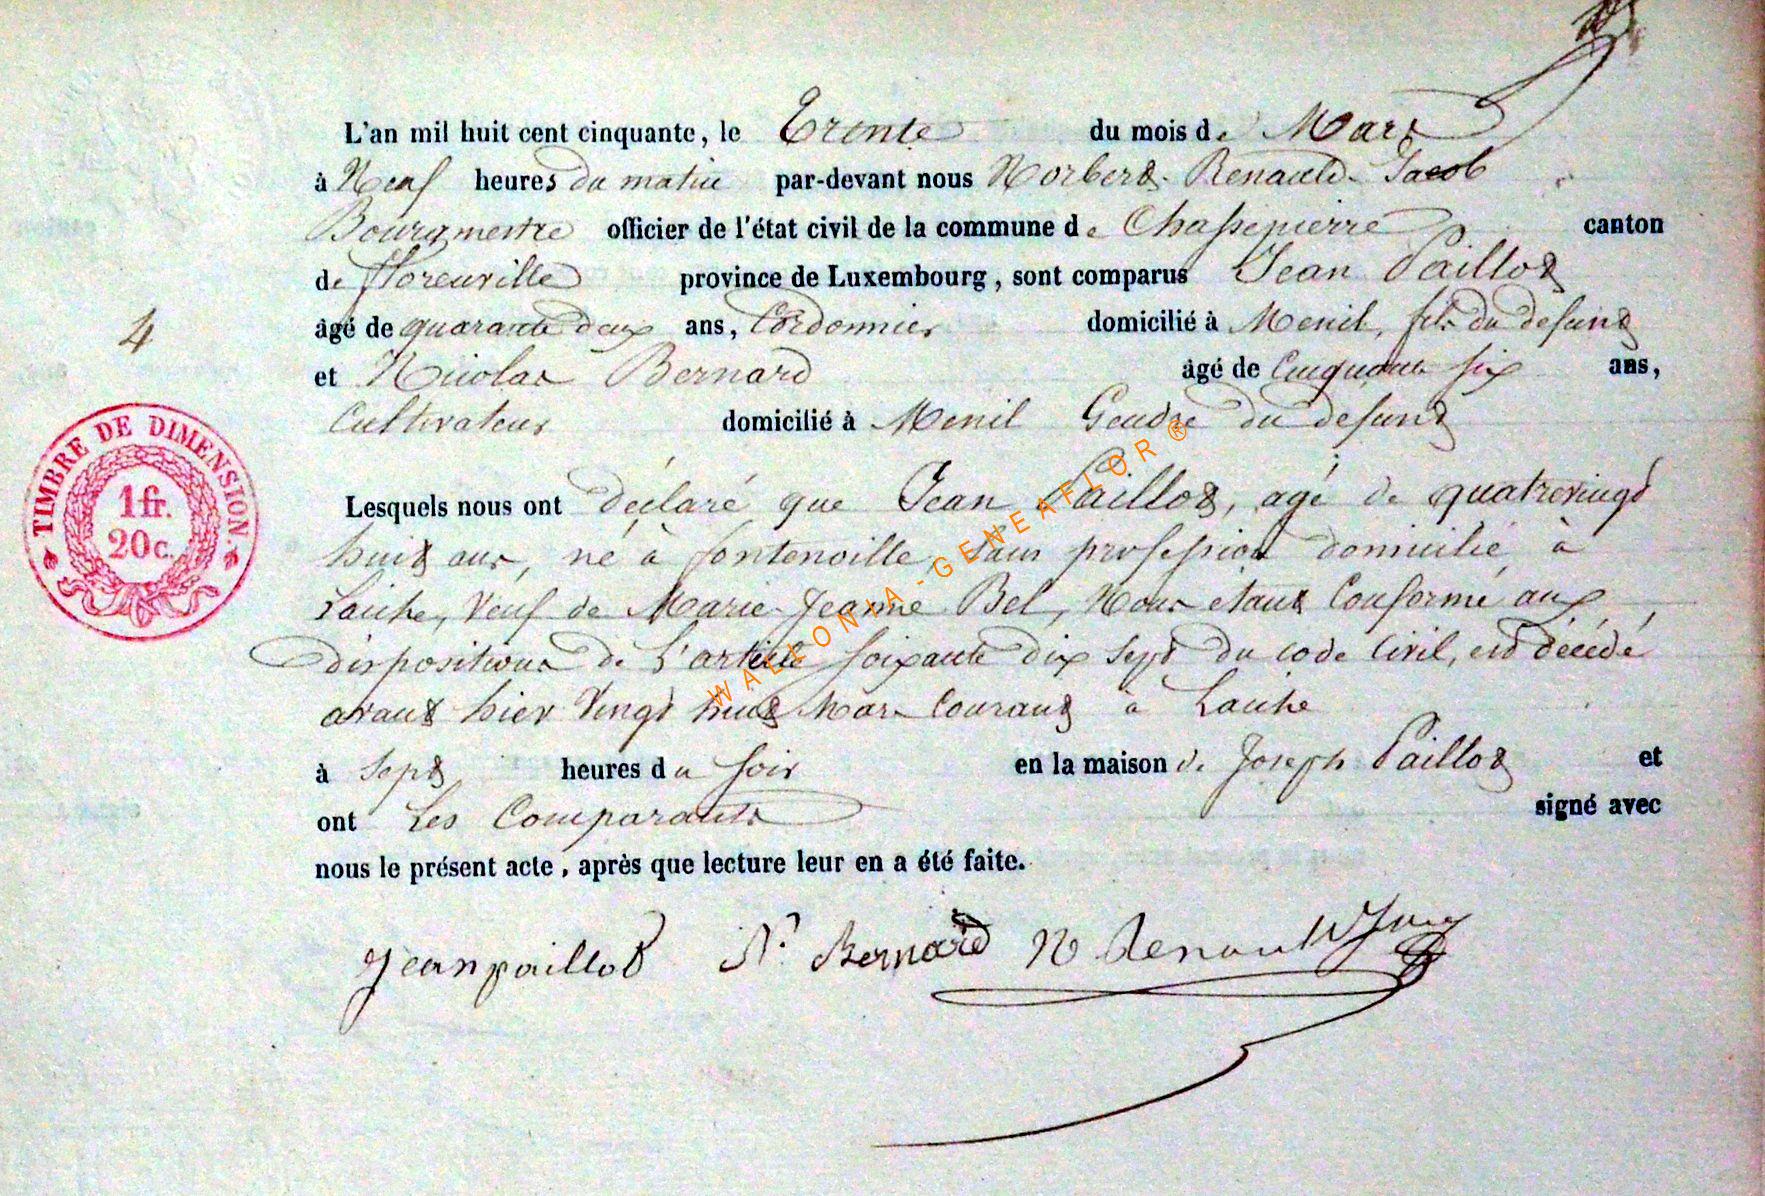 L'an mil huit cent cinquante, le Trente du mois de Mars
à Neuf heures du matin par-devant nous Norbert Renauld Jacob
Bourgmestre officier de l'état civil de la commune de Chassepierre canton
de florenville province de Luxembourg, sont comparus Jean Paillot
âgé de quarante deux ans, Cordonnier domicilié à Menil, fils du defunt
4
et Nicolas Bernard âgé de Cinquante six ans,
Cultivateur domicilié à Menil Gendre du defunt
TIMBRE DE DIMENSION.
1 fr.
20 c.
Lesquels nous ont déclaré que Jean Paillot, agé de quatrevingt
huit ans, né à fontenoille, sans profession domicilié à
Laiche, Veuf de Marie Jeanne Bel, Nous etant Conformé aux
dispositions de L'article soixante dix sept du code Civil, est décédé
avant hier Vingt huit Mars Courant à Laiche
à Sept heures du soir en la maison de Joseph Paillot et
ont Les Comparants signé avec
nous le présent acte, après que lecture leur en a été faite.
Jean paillot N. Bernard N Renauld
WALLONIA-GENEAFLOR®